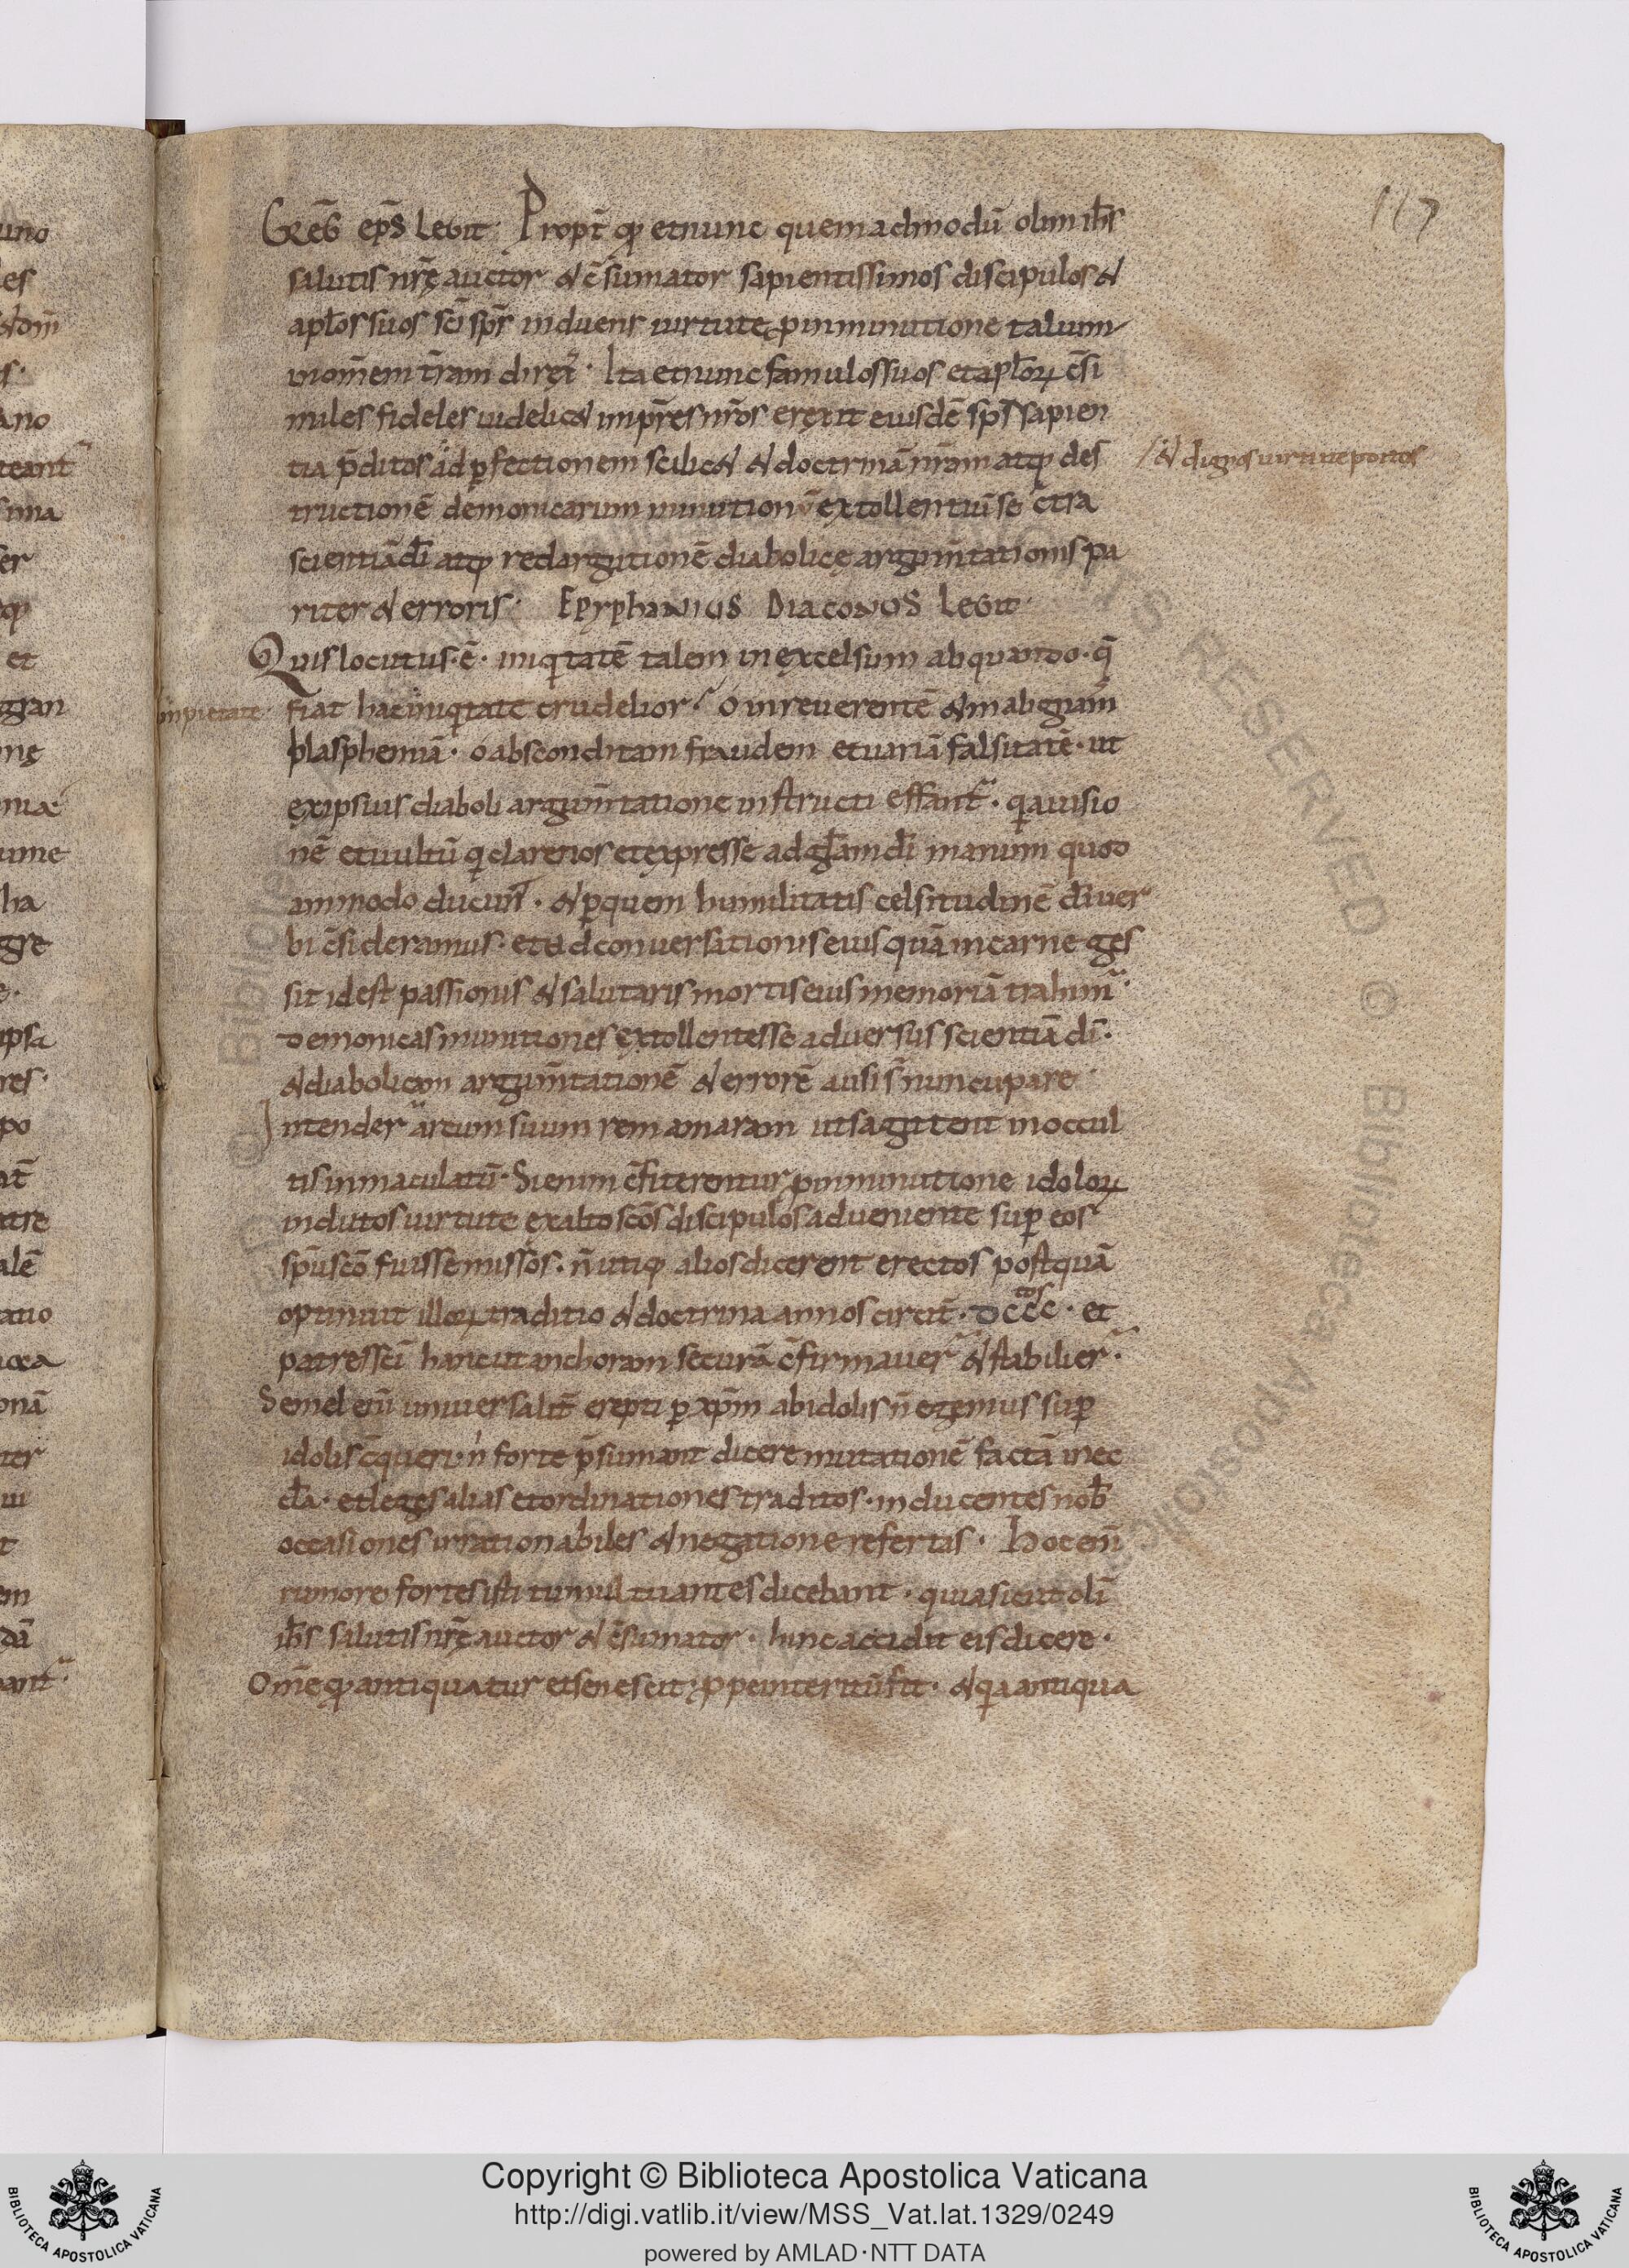 117
GREḠ EP̄S LEGIT· Propt̄ qđ et nunc quemadmodū olim ih̄s
salutis nr̄ę auctor & c̄sumator sapientissimos discipulos &
apl̄os suos sc̄i sp̄s induens uirtute, p inminutione talium
in om̄em t̄ram direx̄· Ita et nunc famulos suos et apl̄oꝝ c̄si
miles fideles uidelic& imp̄res nr̄os erexit eiusdē sp̄s sapien
tia p̄ditos ad ꝑfectionem scilic& & doctrinā nr̄am atq; des
/ & dignos uirtute potitos
tructionē demonicarum munitionū extollentiū se c̄tra
scientiā dī atq; redargutionē diabolicę argum̄tationis pa
riter & erroris· EPYPHANIUS DIACONUS LEGIT·
Quis locutus·ē· iniqͥtatē talem in excelsum abquando· q̄
impietate·
fiat hac iniqͥtate crudelior· ó inreuerentē & malignam
blasphemiā· ó absconditam fraudem et uariā falsitatē· ut
ex ipsius diaboli argum̄tatione instructi effant̄· qͥa uisio
nē et uultū qͥ clarerios et expresse ad gl̄am dī manum quod
ammodo ducunt̄· & ꝑ quem humilitatis celsitudinē dī uer
bi c̄sideramus· et ad conuersationis eius quā in carne ges
sit id est passionis & salutaris mortis eius memoriā trahim̄·
demonicas munitiones extollentes se aduersus scientiā dī·
& diabolicam argum̄tationē & errorē ausi s̄ nuncupare·
Intender̄ arcum suum rem amaram ut sagittent in occul
tis inmaculatū· Si enim c̄fiterentur, p inminutione idoloꝝ
indutos uirtute ex alto sc̄os discipulos adueniente sup̄ eos
sp̄u sc̄o fuisse missos· n̄ utiq; alios dicerent erectos postquā
optinuit illoꝝ traditio & doctrina annos circit̄· dccc tos· et
patres sc̄i hanc ut anchoram securā c̄firmauer̄ & stabilier̄·
Semel enī uniuersalit̄ erepti ꝑ xp̄m ab idolis n̄ egemus sup̄
idolis c̄queri· n̄ forte p̄sumant dicere mutationē factā in ec
cl̄a· et leges alias et ordinationes traditos· inducentes nob̄
occasiones irrationabiles & negatione refertis· Hoc enī
rumore fortes isti tumultuantes dicebant· quia sicut olī
ih̄s salutis nr̄ę auctor & c̄sumator· hinc accidit eis dicere·
Om̄e qđ antiquatur et senescit, ꝓpe interitū fit· & qͥa antiqua
Copyright © Biblioteca Apostolica Vaticana
http://digi.vatlib.it/view/MSS_Vat.lat.1329/0249
powered by AMLAD·NTT DATA
BIBLIOTECA APOSTOLICA VATICANA
BIBLIOTECA APOSTOLICA VATICANA